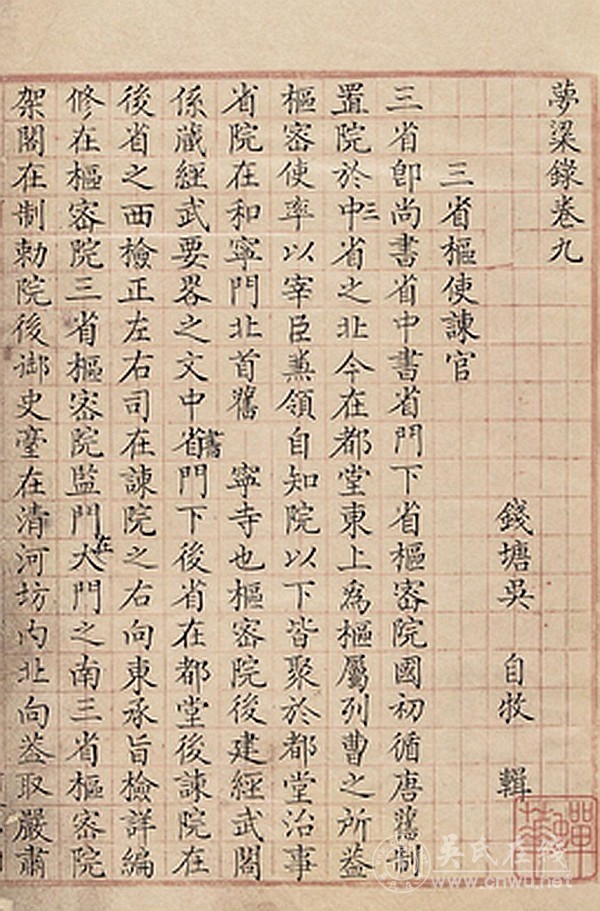 夢梁錄卷九
錢塘吳 自牧 輯
三省樞使諫官
三省卽尚書省中書省門下省樞密院國初循唐舊制
置院於中三省之北今在都堂東上爲樞屬列曹之所葢
樞密使率以宰臣兼領自知院以下皆聚於都堂治事
省院在和寧門北首舊 寧寺也樞密院後建經武閣
係藏經武要畧之文中書省門下後省在都堂後諫院在
後省之西檢正左右司在諫院之右向東承旨檢詳編
修在樞密院三省樞密院監門在大門之南三省樞密院
架閣在制勅院後御史臺在清河坊内北向葢取嚴肅
吴氏在线
www.cnwu.net